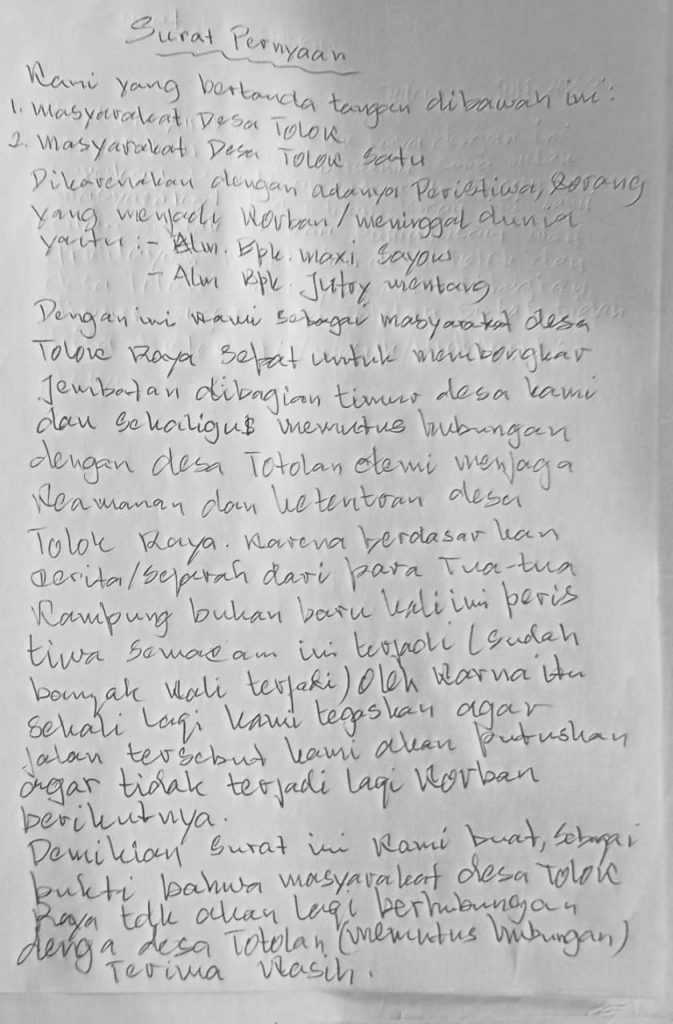 Surat Pernyaan
Kami yang bertanda tangan dibawah ini :
1. Masyarakat Desa Tolok
2. Masyarakat Desa Tolok Satu
Dikarenakan dengan adanya Peristiwa, 2orang
yang menjadi Korban / meninggal dunia
yaitu : - Alm. Bpk. Maxi Sayow
- Alm Bpk. Jutry Mentang
Dengan ini kami sebagai masyarakat desa
Tolok Raya Sepat untuk membongkar
Jembatan dibagian timur desa kami
dan sekaligus memutus hubungan
dengan desa Totolan demi menjaga
Keamanan dan ketentran desa
Tolok Raya. Karena berdasarkan
Cerita/Sejarah dari para Tua-tua
Kampung bukan baru kali ini peris
tiwa semacam ini terjadi (sudah
banyak kali terjadi) Oleh Karna itu
sekali lagi kami tegaskan agar
jalan tersebut kami akan putuskan
agar tidak terjadi lagi Korban
berikutnya.
Demikian surat ini Kami buat, sebagai
bukti bahwa masyarakat desa Tolok
Raya tdk akan lagi berhubungan
denga desa Totolan (memutus hubungan)
Terima Kasih.